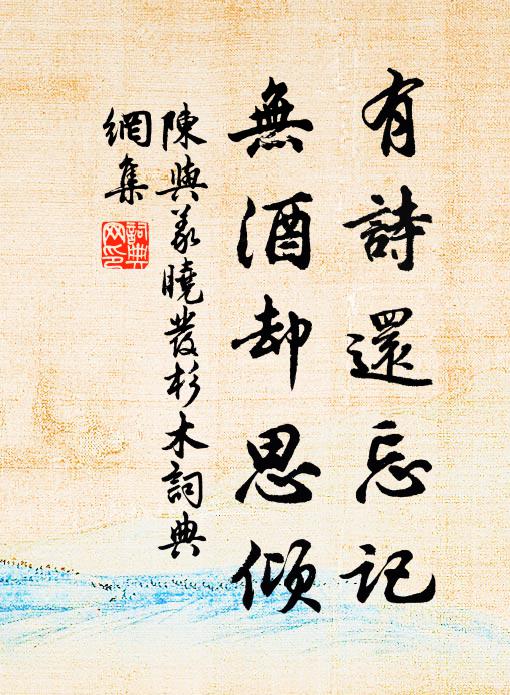 有詩還忘記
無酒却思傾
陳與義曉發杉木詞典
網集
詞典
网印